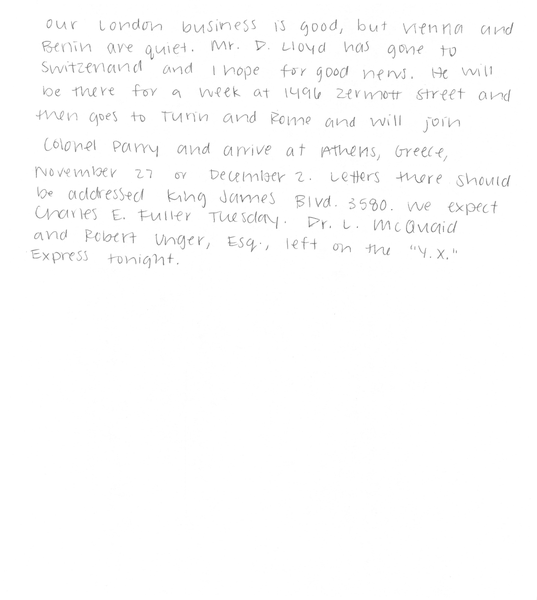 our London business is good, but vienna and
Berlin are quiet. Mr. D. Lloyd has gone to
Switzerland and I hope for good news. He will
be there for a week at 1496 zermott street and
then goes to Turin and Rome and will join
Colonel Parry and arrive at Athens, Greece,
November 27 or December 2. Letters there should
be addressed King James Blvd. 3580. we expect
Charles E. Fuller Tuesday. Dr. L. McQuaid
and Robert Unger, Esq., left on the "Y.X."
Express tonight.